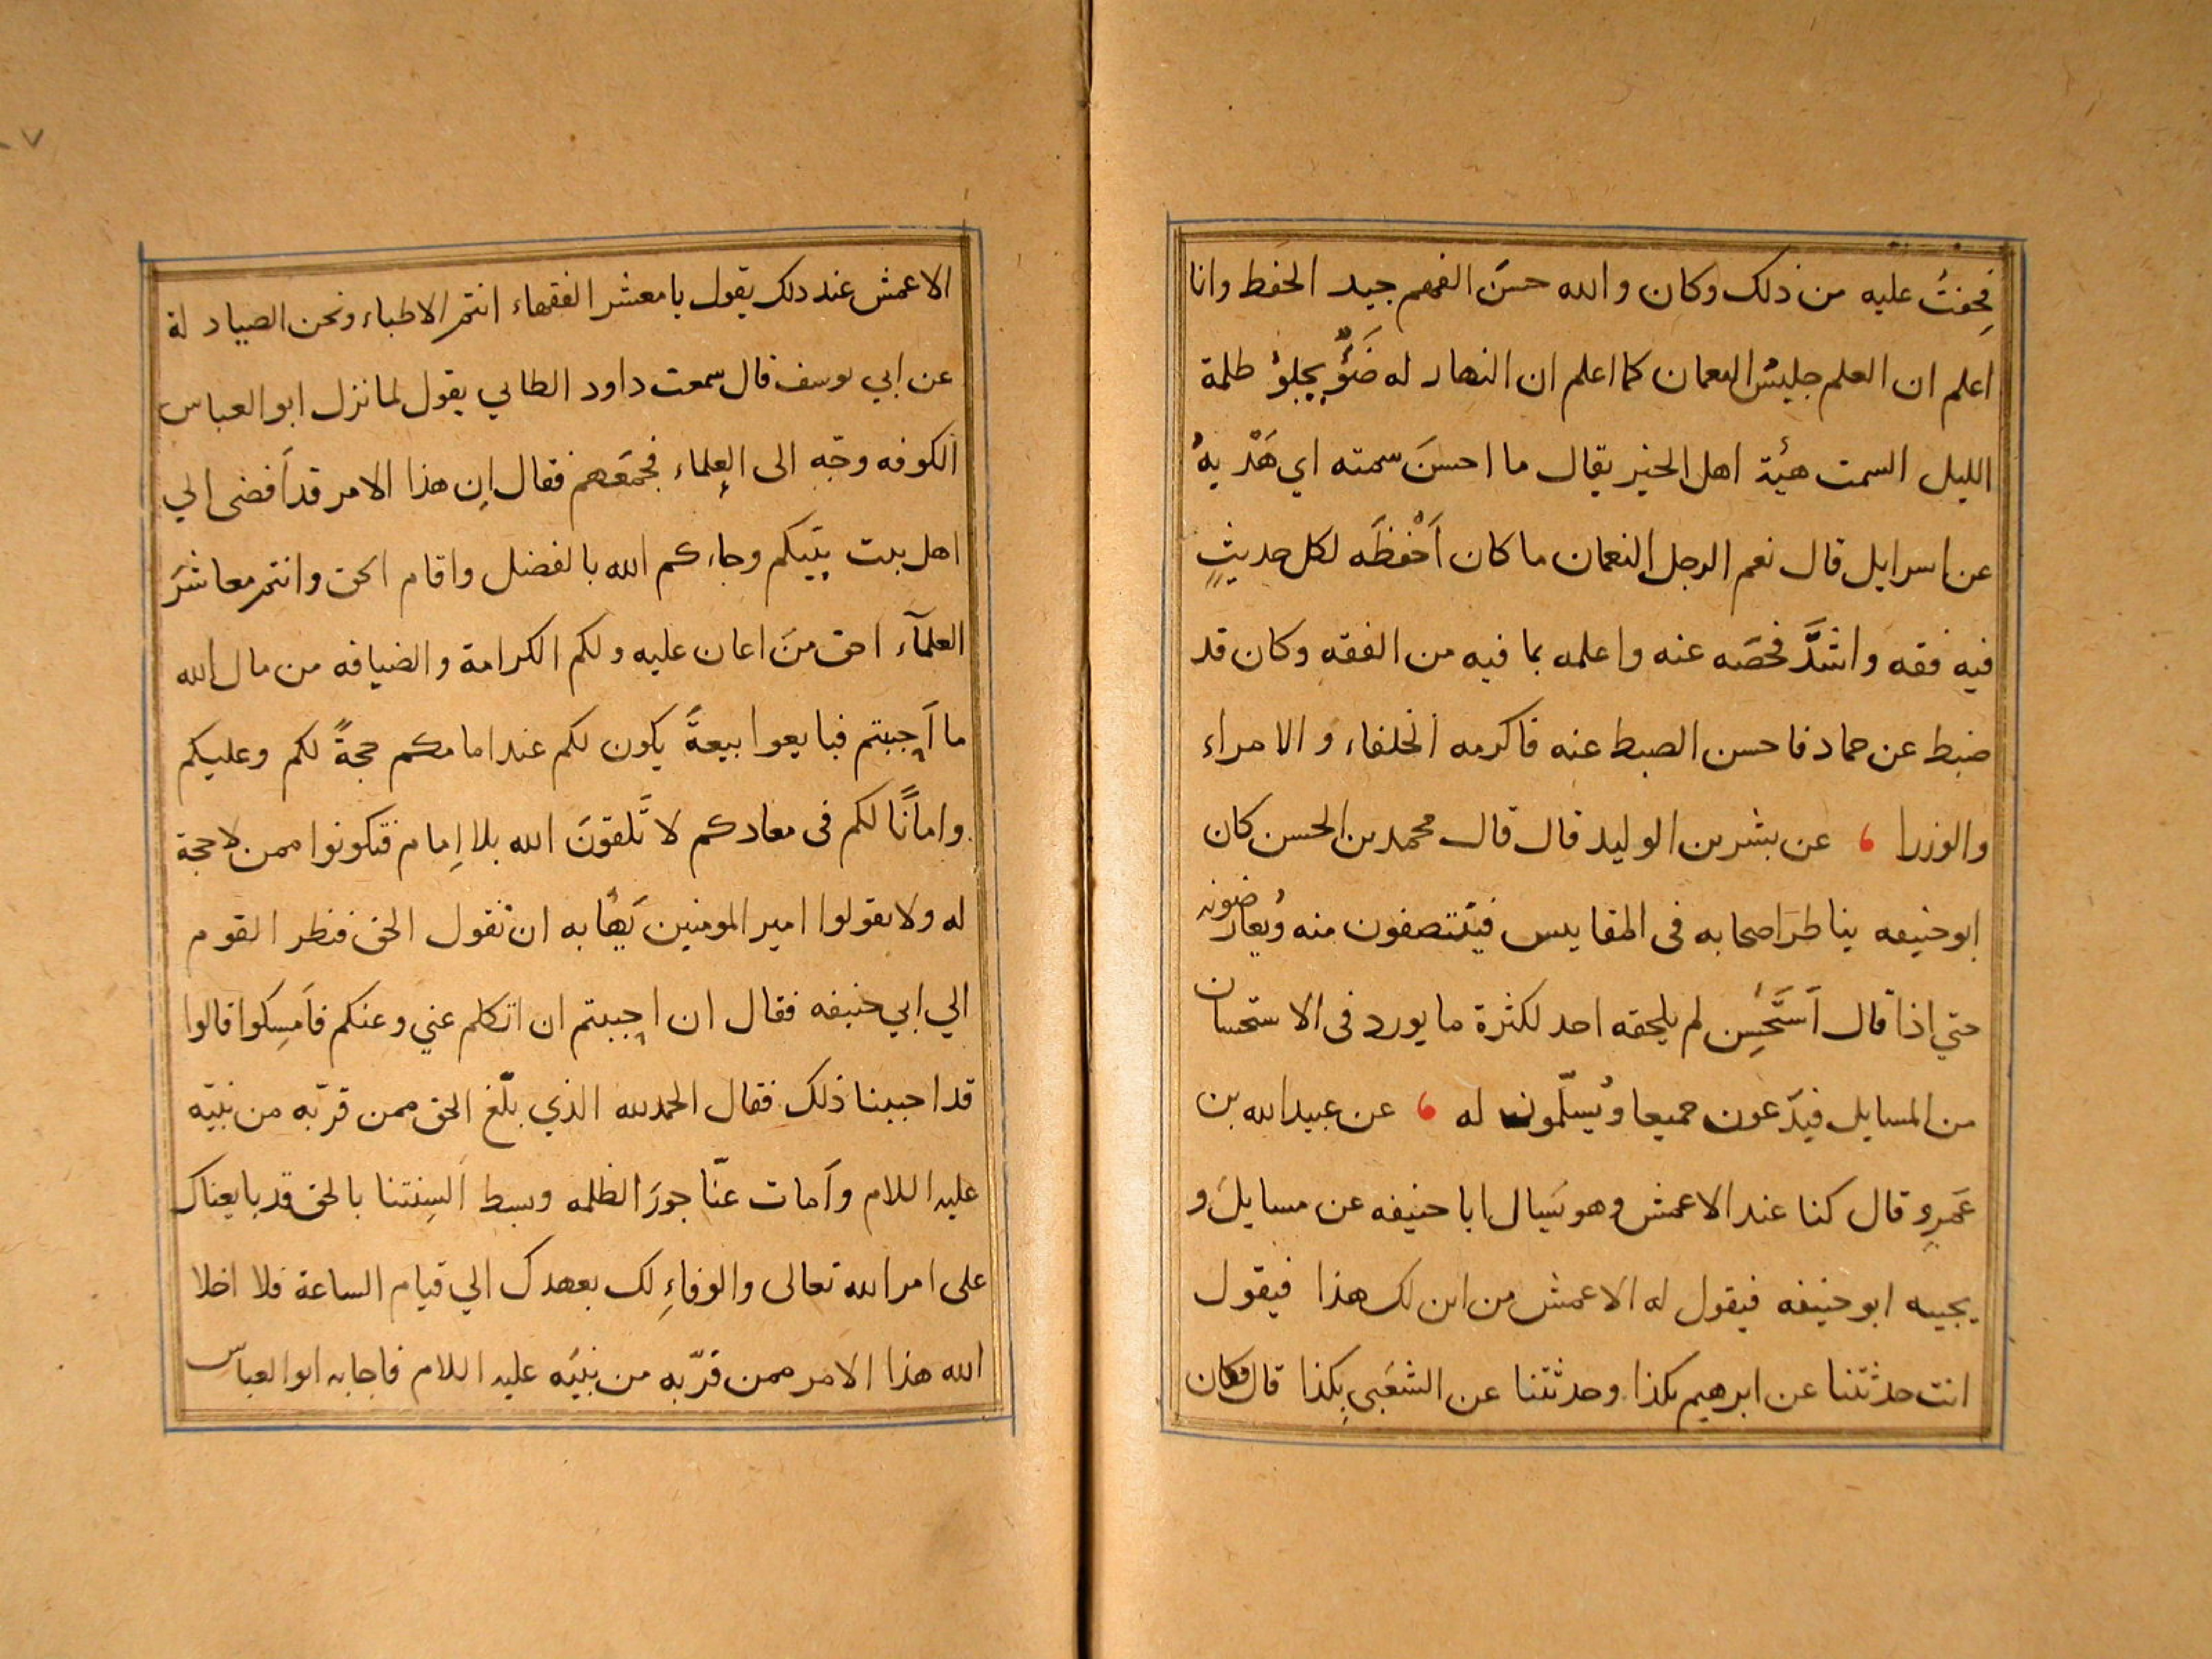 فخفتُ عليه من ذلك وكان والله حسَن الفهم جيد الحفظ وانا
اعلم ان العلم جليسُ النعمان كما اعلم ان النهار له ضَوْءٌ يجلوُ ظلمة
الليل السمت هيْئة اهل الخير يقال ما احسنَ سمته اي هَدْيهُ
عن اسرايل قال نعم الرجل النعمان ما كان اَحْفظَه لكل حديثٍ
فيه فقه واشدَّ فحصَه عنه واعلمه بما فيه من الفقه وكان قد
ضبط عن حماد فاحسن الضبط عنه فاكرمه الخلفاء و الامراء
والوزرا ، عن بشر بن الوليد قال قال محمد بن الحسن كان
ابوحنيفه يناظرَ اصحابه فى المقاييس فينتصفون منه ويُعارضونه
حتي اذا قال اَستَحْسِن لم يلحقه احد لكثرة ما يورد فى الاستحسان
من المسايل فيدَعون جميعا ويُسلّمون له ، عن عبيدالله بن
عَمرِو قال كنا عند الاعمش وهو يَسال ابا حنيفه عن مسايلَ و
يجيبه ابو حنيفه فيقول له الاعمش من اين لك هذا فيقول
انت حدثتنا عن ابرهيم بكذا وحدثتنا عن الشعَبي بِكذا قال فكان
الاعمش عند ذلك يقول يا معشر الفقهاء انتم الاطباء ونحن الصيادلة
عن ابي يوسف قال سمعت داود الطائي يقول لما نزل ابو العباس
الكوفه وجّه الى العلماء فجمَعَهم فقال اِن هذا الامر قد اَفضى الي
اهل بيت نبيكم وجاءكم الله بالفضل واقام الحق وانتم معاشرَ
العلمآء احق منَ اعان عليه ولكم الكرامة والضيافه من مال الله
ما اَحببتم فبايعوا بيعةً يكون لكم عند امامكم حجةً لكم وعليكم
واماناً لكم فى معادكم لا تَلقونَ الله بلا اِمام فتكونوا ممن لا حجة
له ولا يقولوا امير المومنين نَهابه ان نقول الحق فنظر القوم
الي ابي حنيفه فقال ان احببتم ان اتكلم عني وعنكم فاَمسِكوا قالوا
قد احببنا ذلك فقال الحمدلله الذي بلّغ الحق ممن قرّبه من نبيّه
عليه السلام واَمات عنّا جورَ الظلمه وبسط اَلسِنتنا بالحق قد بايعناك
على امر الله تعالى والوفاءِ لك بعهدك الي قيام الساعة فلا اخلا
الله هذا الامر ممن قرّبه من نبيّه عليه السلام فاجابه ابو العباس